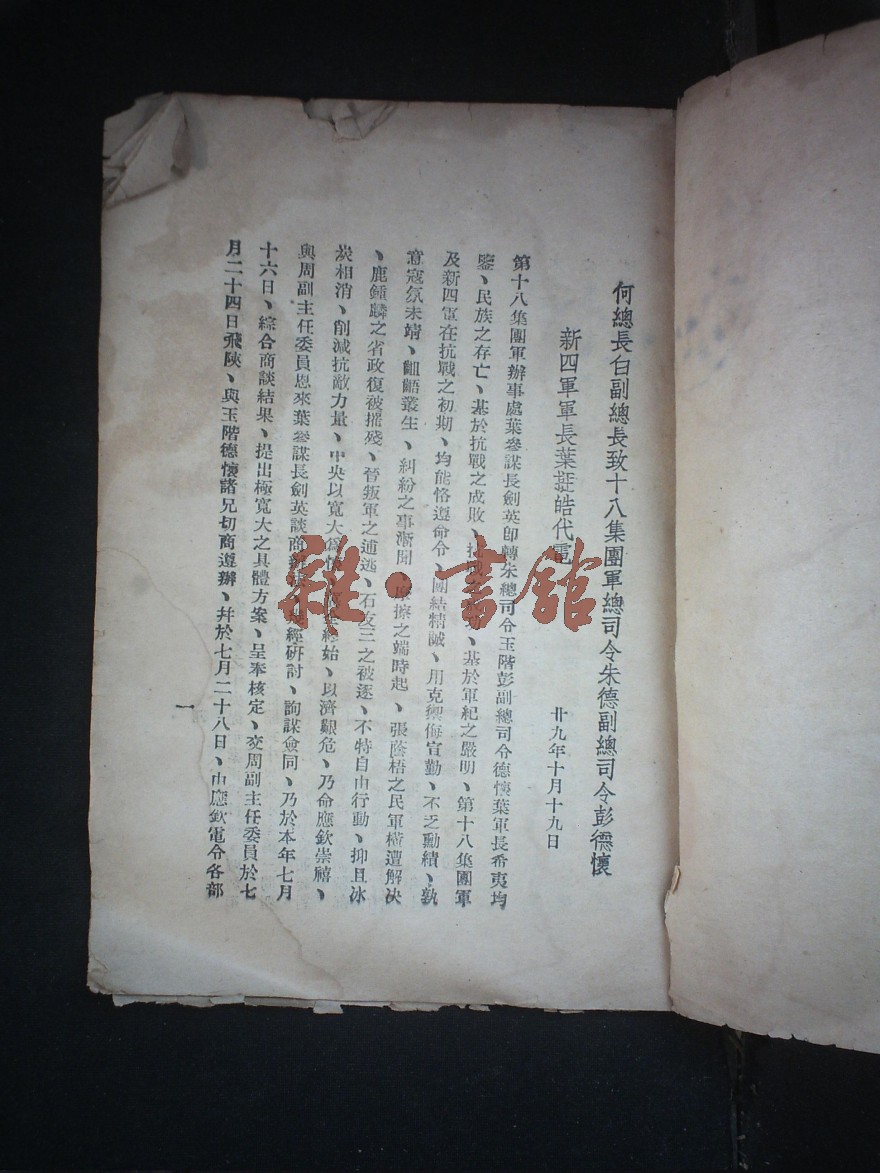 何總長白副總長致十八集團軍總司令朱德副總司令彭德懷
新四軍軍長葉挺皓代電
廿九年十月十九日
第十八集團軍辦事處葉參謀長劍英卽轉朱總司令玉階彭副總司令德懷葉軍長希夷均
鑒、民族之存亡、基於抗戰之成敗、抗戰之、基於軍紀之嚴明、第十八集團軍
及新四軍在抗戰之初期、均能恪遵命令、團結精誠、用克禦侮宣勤、不乏勳績、孰
意寇氛未靖、齟齬叢生、糾紛之事漸聞、摩擦之端時起、張蔭梧之民軍橫遭解决
、鹿鍾麟之省政復被摧殘、晉叛軍之逋逃、石友三之被逐、不特自由行動、抑且冰
炭相消、削減抗敵力量、中央以寬大爲懷、終始、以濟艱危、乃命應欽崇禧、
與周副主任委員恩來葉參謀長劍英談商辦法、經研討、詢謀僉同、乃於本年七月
十六日、綜合商談結果、提出極寬大之具體方案、呈奉核定、交周副主任委員於七
月二十四日飛陝、與玉階德懷諸兄切商遵辦、幷於七月二十八日、由應欽電令各部
一
雜·書館